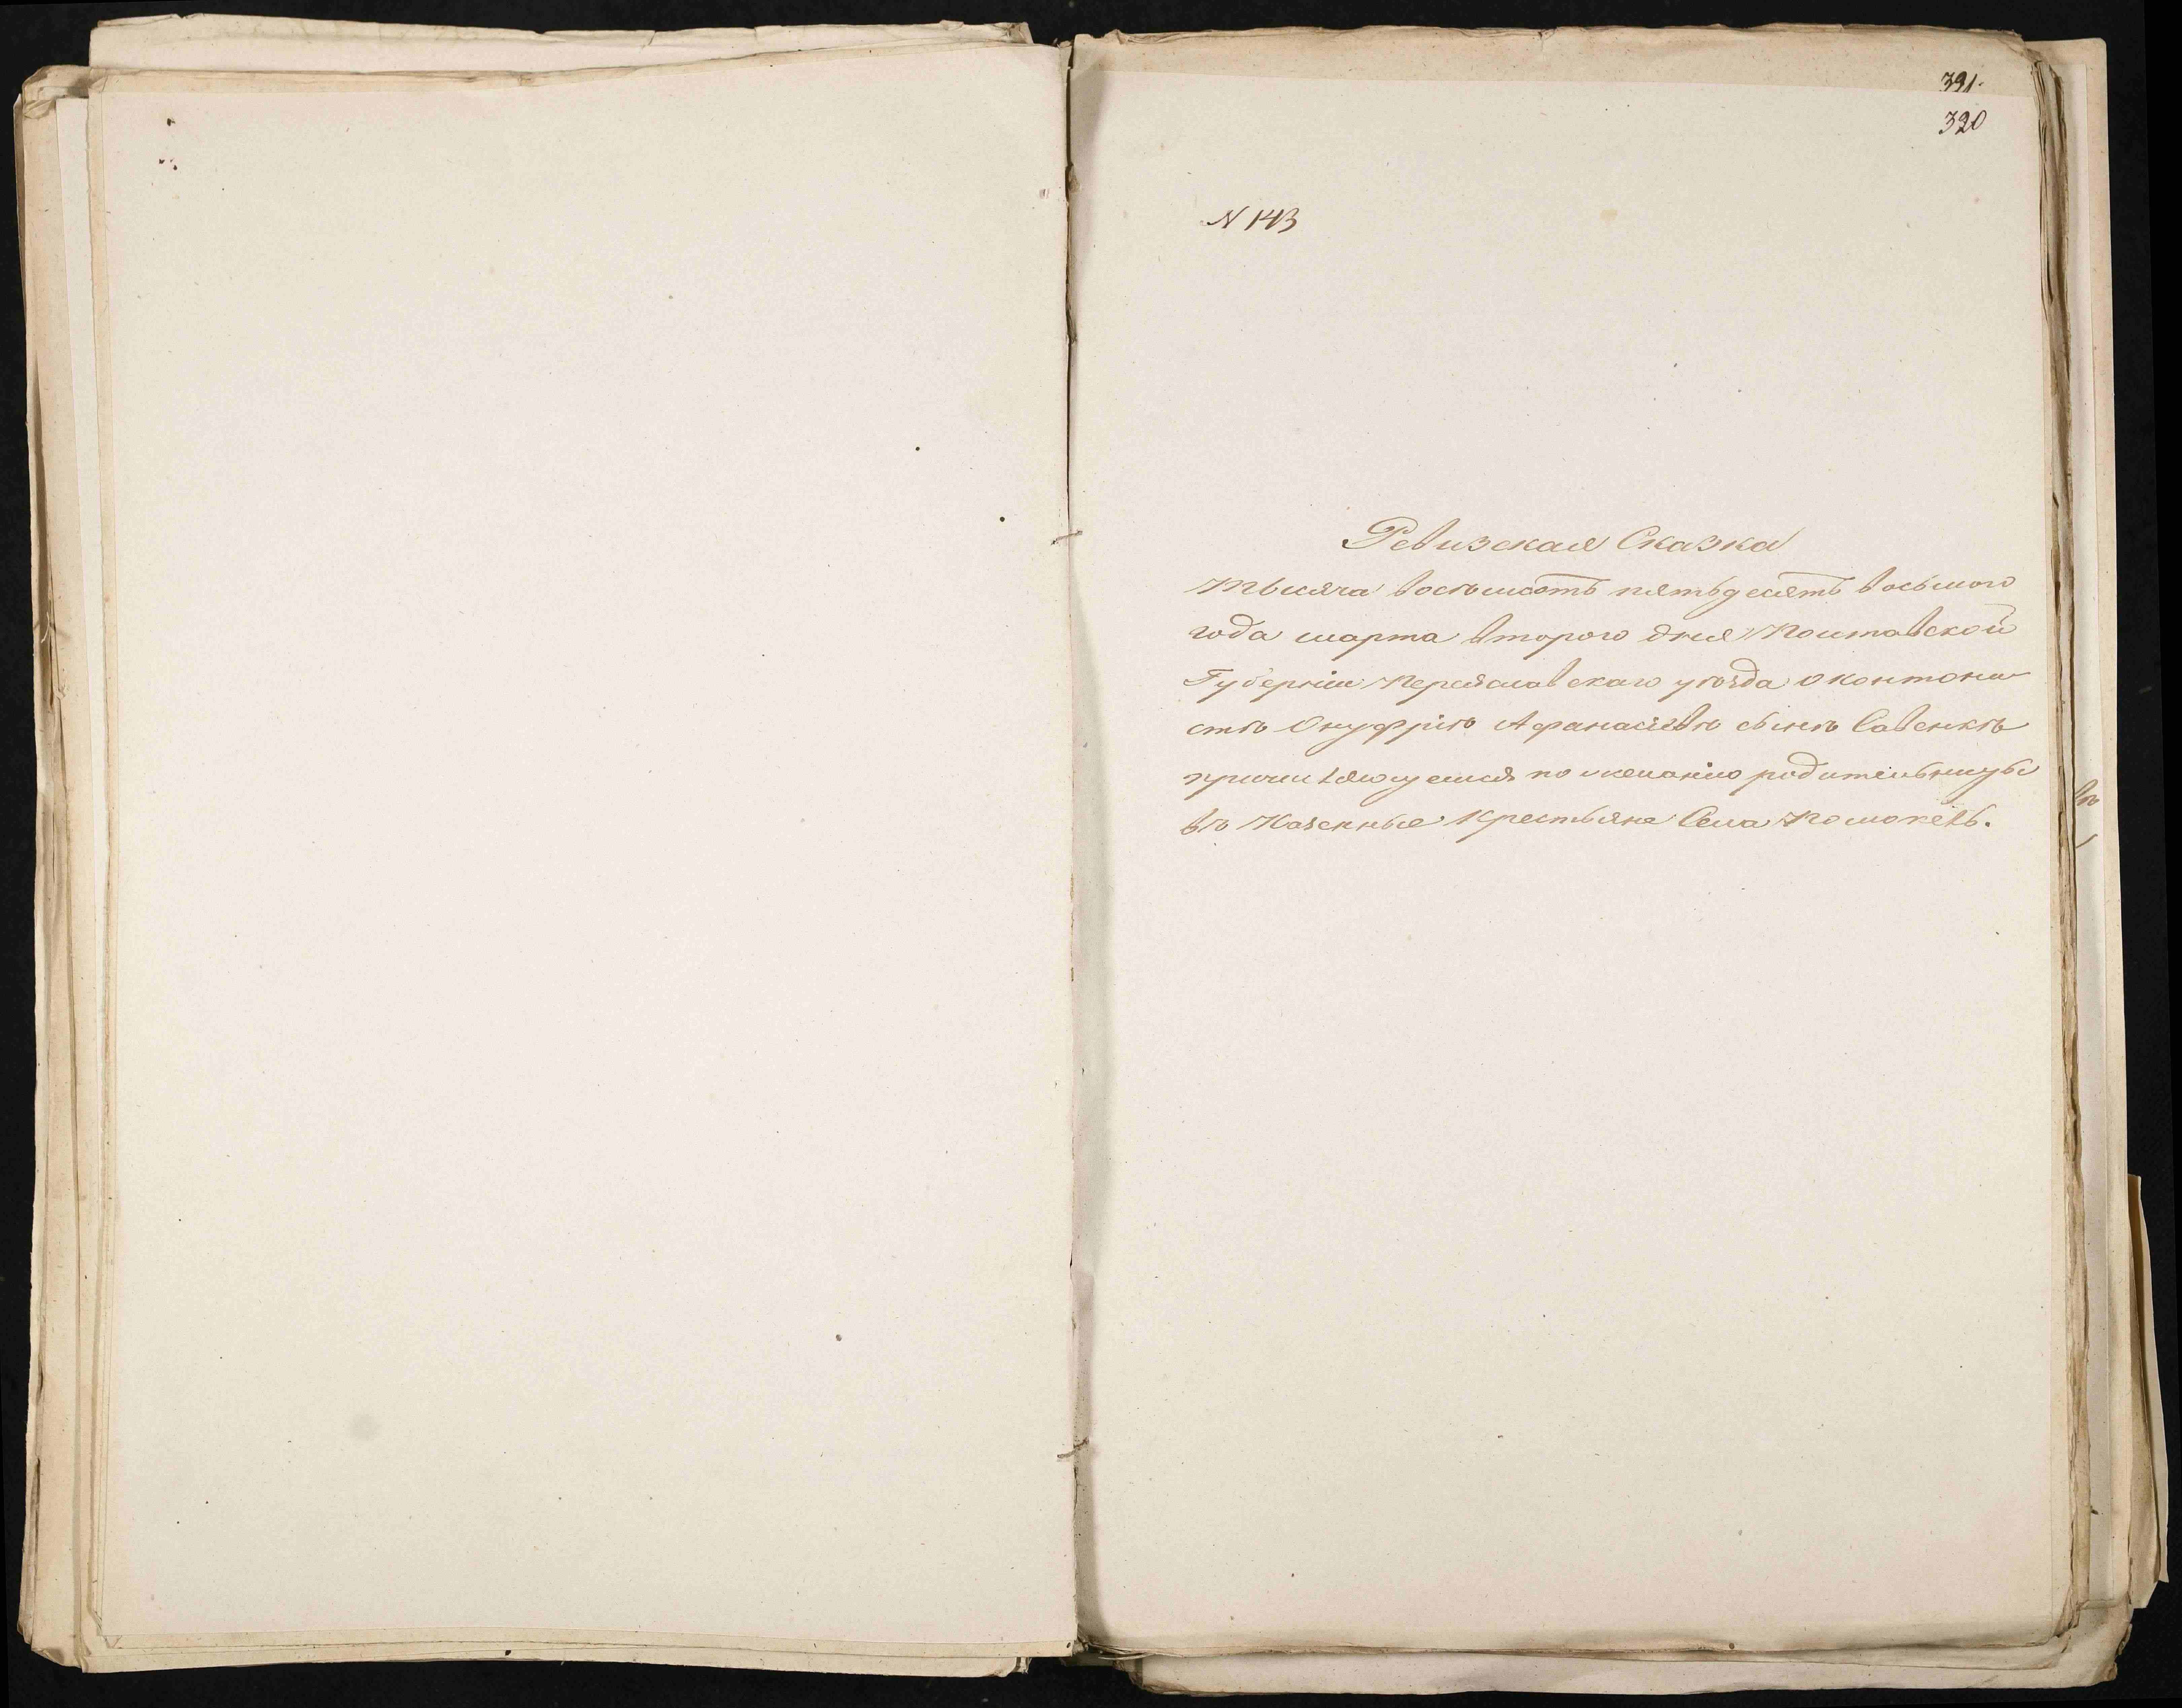 391.
320
N 143
Ревизская Сказка
Тысяча восемьсотъ пятьдесятъ восьмого
года марта второго дня Полтавской
Губерніи Переяславскаго уѣзда о контони
стѣ Онуфріѣ Афанасіевѣ сынѣ Савенкѣ
причисляющемся по желанію родительницы
въ Казенные Крестьяне Села
въ